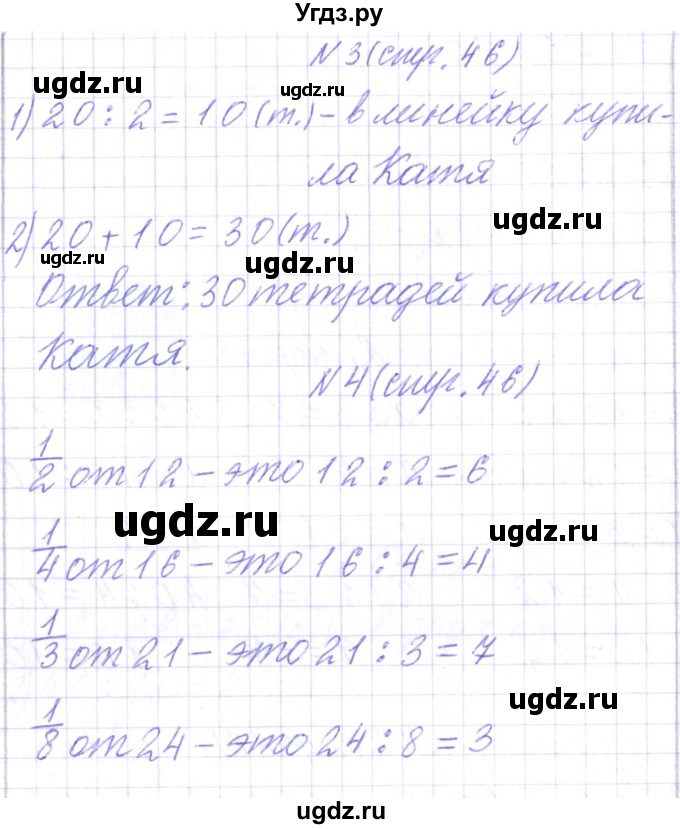 Угдз.ру
N3 (стр. 46)
ugdz.ru ugdz.ru
1) 20 : 2 = 10 (т.) – в линейку купи-
ла Катя
ugdz.ru
2) 20 + 10 = 30 (т.)
ugdz.ru ugdz.ru
Ответ: 30 тетрадей купила
Катя.
N4 (стр. 46)
1/2 от 12 – это 12 : 2 = 6
ugdz.ru ugdz.ru
1/4 от 16 – это 16 : 4 = 4
1/3 от 21 – это 21 : 3 = 7
ugdz.ru
1/8 от 24 – это 24 : 8 = 3
ugdz.ru